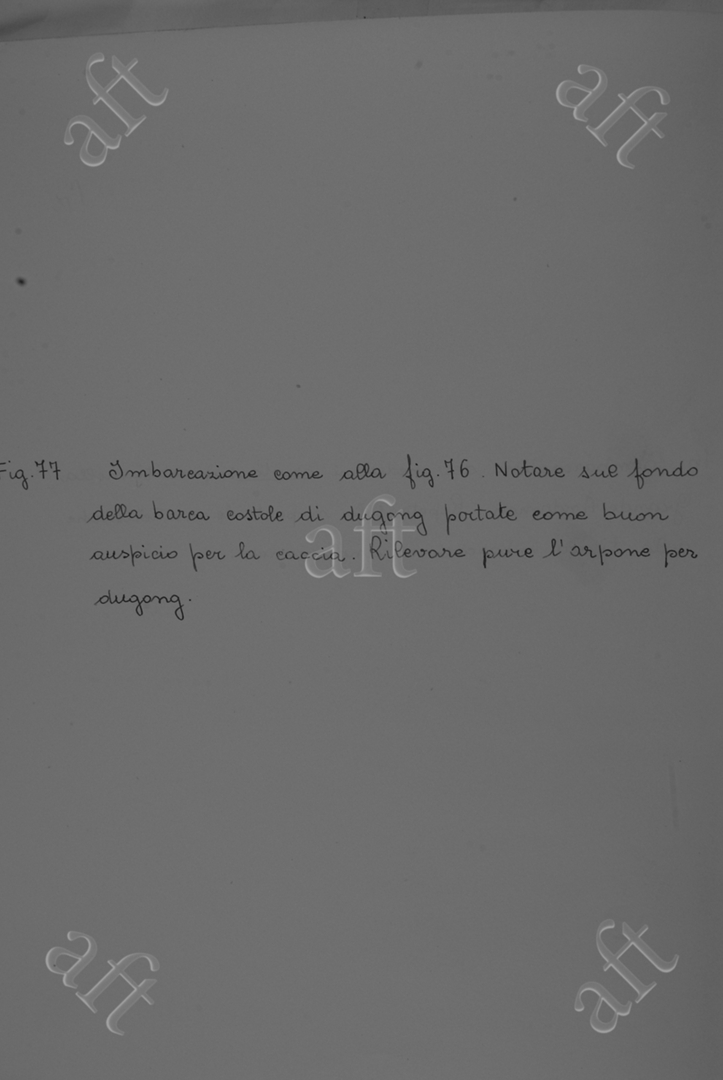 aft
aft
Fig.77 Imbarcazione come alla fig.76. Notare sul fondo
della barca costole di dugong portate come buon
auspicio per la caccia. Rilevare pure l'arpone per
dugong.
aft
aft
aft